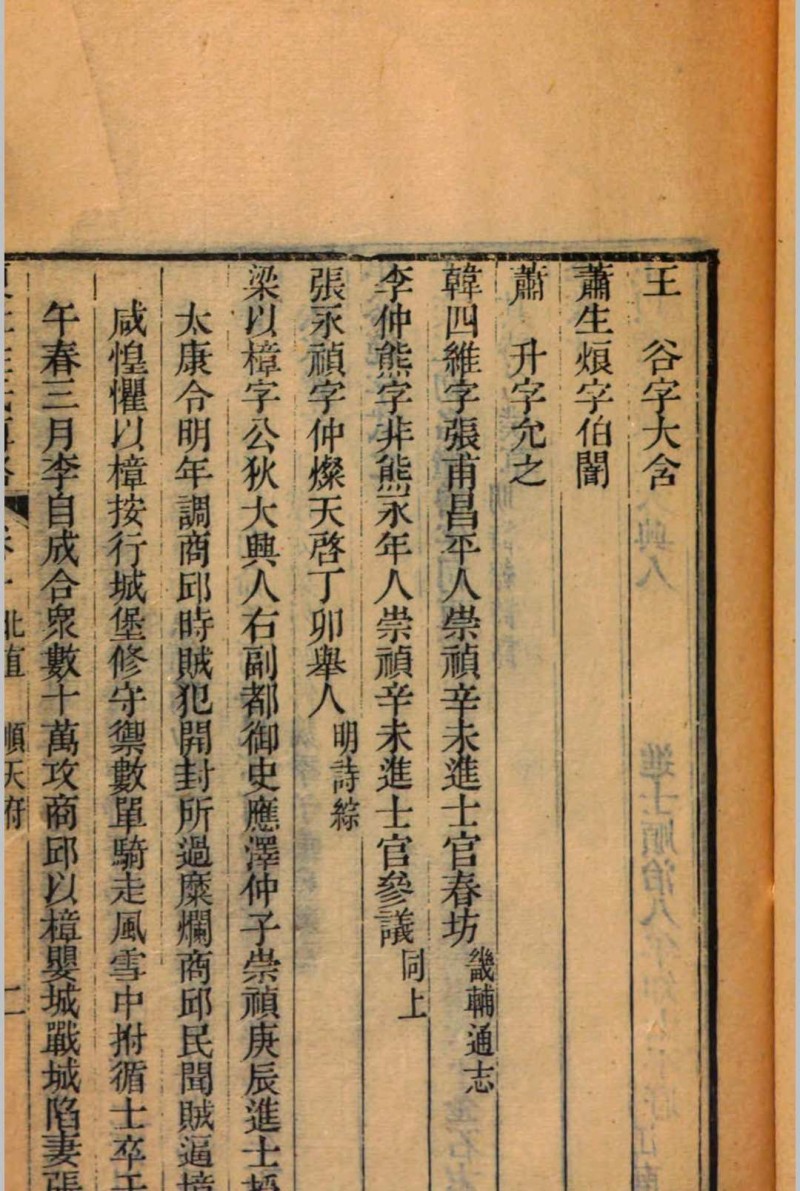 王　谷字大含
蕭生烺字伯闇
蕭　升字允之
韓四維字張甫昌平人崇禎辛未進士官春坊畿輔通志
李仲熊字非熊永年人崇禎辛未進士官參議同上
張永禎字仲燦天啓丁卯舉人明詩綜
梁以樟字公狄大興人右副都御史應澤仲子崇禎庚辰進士授
太康令明年調商邱時賊犯開封所過糜爛商邱民聞賊逼
咸惶懼以樟按行城堡修守禦數單騎走風雪中拊循士卒
午春三月李自成合衆數十萬攻商邱以樟嬰城戰城陷妻張
北直　順天府　二